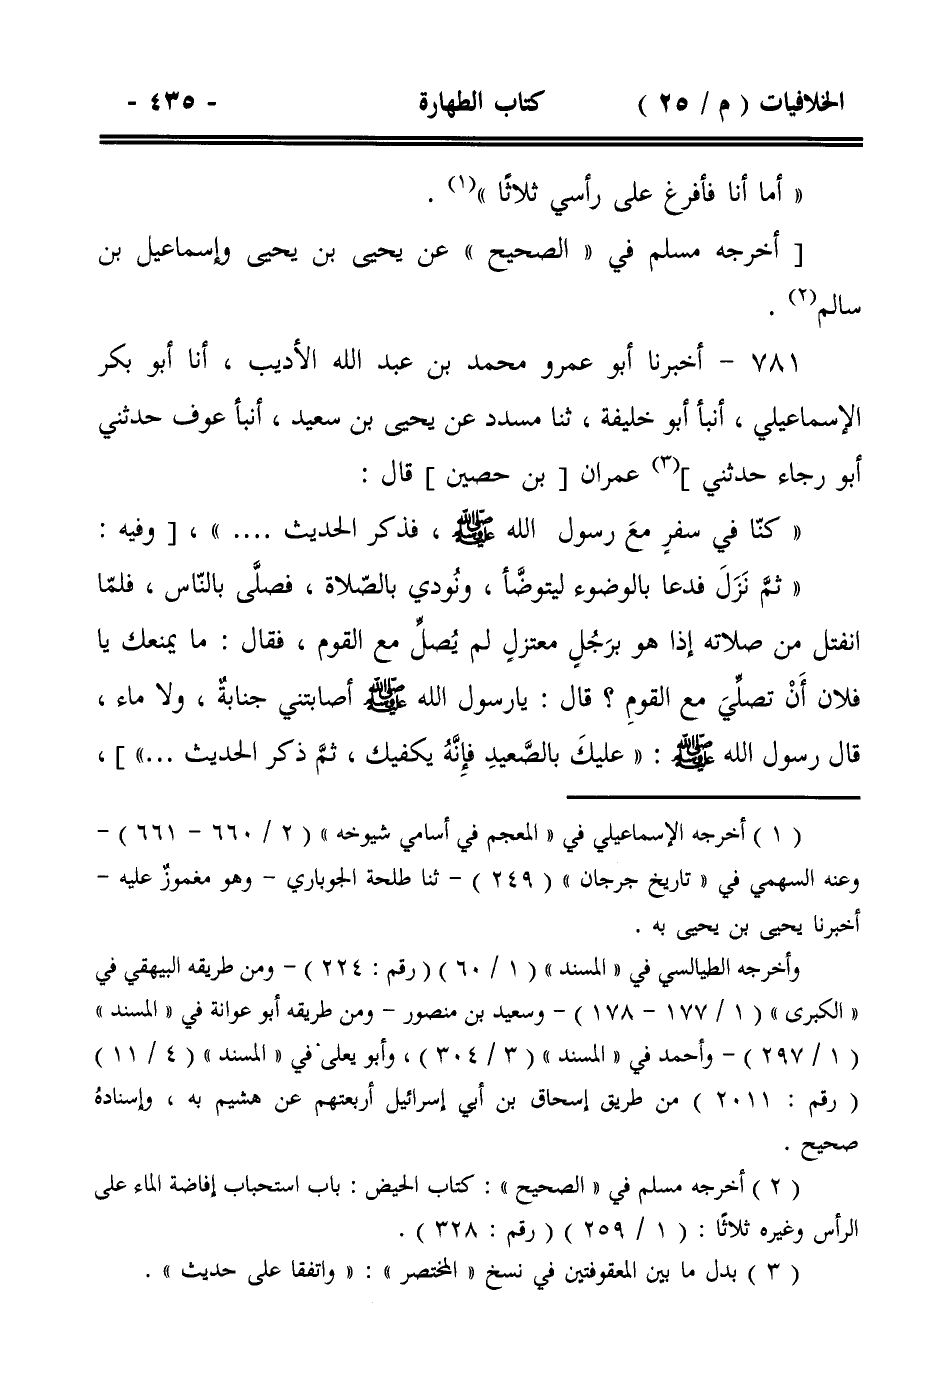 الخلافيات ( م / ٢٥ ) كتاب الطهارة - ٤٣٥ -
« أما أنا فأفرغ على رأسي ثلاثًا »(١) .
[ أخرجه مسلم في « الصحيح » عن يحيى بن يحيى وإسماعيل بن
سالم(٢) .
٧٨١ - أخبرنا أبو عمرو محمد بن عبد الله الأديب ، أنا أبو بكر
الإسماعيلي ، أنبأ أبو خليفة ، ثنا مسدد عن يحيى بن سعيد ، أنبأ عوف حدثني
أبو رجاء حدثني ](٣) عمران [ بن حصين ] قال :
« كنّا في سفرٍ معَ رسول الله ﷺ ، فذكر الحديث .... » ، [ وفيه :
« ثمَّ نَزَلَ فدعا بالوضوء ليتوضَّأ ، ونُودي بالصّلاة ، فصلَّى بالنّاس ، فلمّا
انفتل من صلاته إذا هو برَجُلٍ معتزلٍ لم يُصلِّ مع القوم ، فقال : ما يمنعك يا
فلان أَنْ تصلِّيَ مع القومِ ؟ قال : يارسول الله ﷺ أصابتني جنابةٌ ، ولا ماء ،
قال رسول الله ﷺ : « عليكَ بالصَّعيدِ فإِنَّهُ يكفيك ، ثمَّ ذكر الحديث ...» ] ،
( ١ ) أخرجه الإسماعيلي في « المعجم في أسامي شيوخه » ( ٢ / ٦٦٠ - ٦٦١ ) -
وعنه السهمي في « تاريخ جرجان » ( ٢٤٩ ) - ثنا طلحة الجوباري - وهو مغموزٌ عليه -
أخبرنا يحيى بن يحيى به .
وأخرجه الطيالسي في « المسند » ( ١ / ٦٠ ) ( رقم : ٢٢٤ ) - ومن طريقه البيهقي في
« الكبرى » ( ١ / ١٧٧ - ١٧٨ ) - وسعيد بن منصور - ومن طريقه أبو عوانة في « المسند »
( ١ / ٢٩٧ ) - وأحمد في « المسند » ( ٣ / ٣٠٤ ) ، وأبو يعلى في « المسند » ( ٤ / ١١ )
( رقم : ٢٠١١ ) من طريق إسحاق بن أبي إسرائيل أربعتهم عن هشيم به ، وإسنادهُ
صحيح .
( ٢ ) أخرجه مسلم في « الصحيح » : كتاب الحيض : باب استحباب إفاضة الماء على
الرأس وغيره ثلاثًا : ( ١ / ٢٥٩ ) ( رقم : ٣٢٨ ) .
( ٣ ) بدل ما بين المعقوفتين في نسخ « المختصر » : « واتفقا على حديث » .